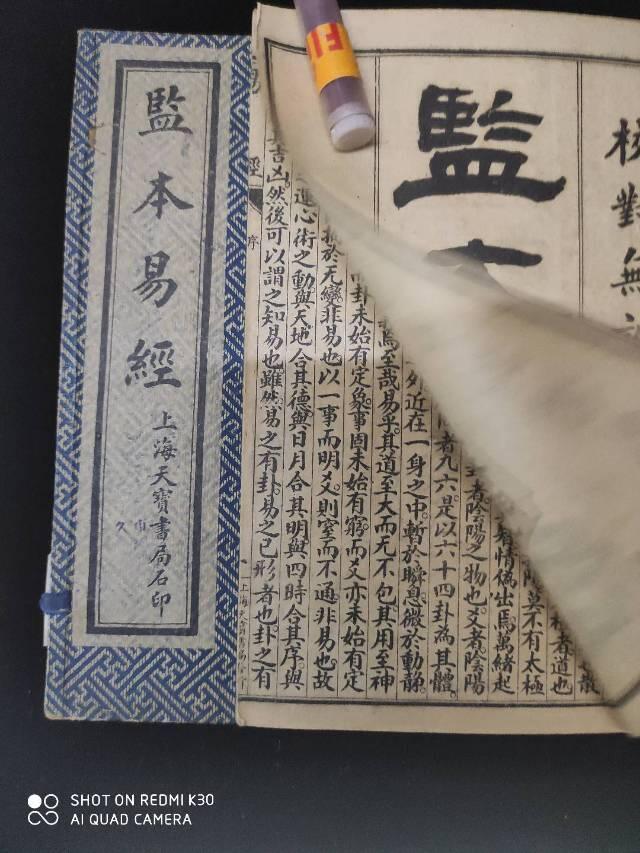 監本易經
上海天寶書局石印
久
監
對無
散
者道也
莫不有太極
情僞出焉萬緒起
者陰陽之物也爻者陰陽
者九六是以六十四卦為其體
外近在一身之中暫於瞬息微於動靜
焉至哉易乎其道至大而无不包其用至神
而卦未始有定象事固未始有窮而爻亦未始有定
於无變非易也以一事而明爻則窒而不通非易也故
運心術之動與天地合其德與日月合其明與四時合其序與
吉凶然後可以謂之知易也雖然易之有卦易之已形者也卦之有
經
序
SHOT ON REDMI K30
AI QUAD CAMERA